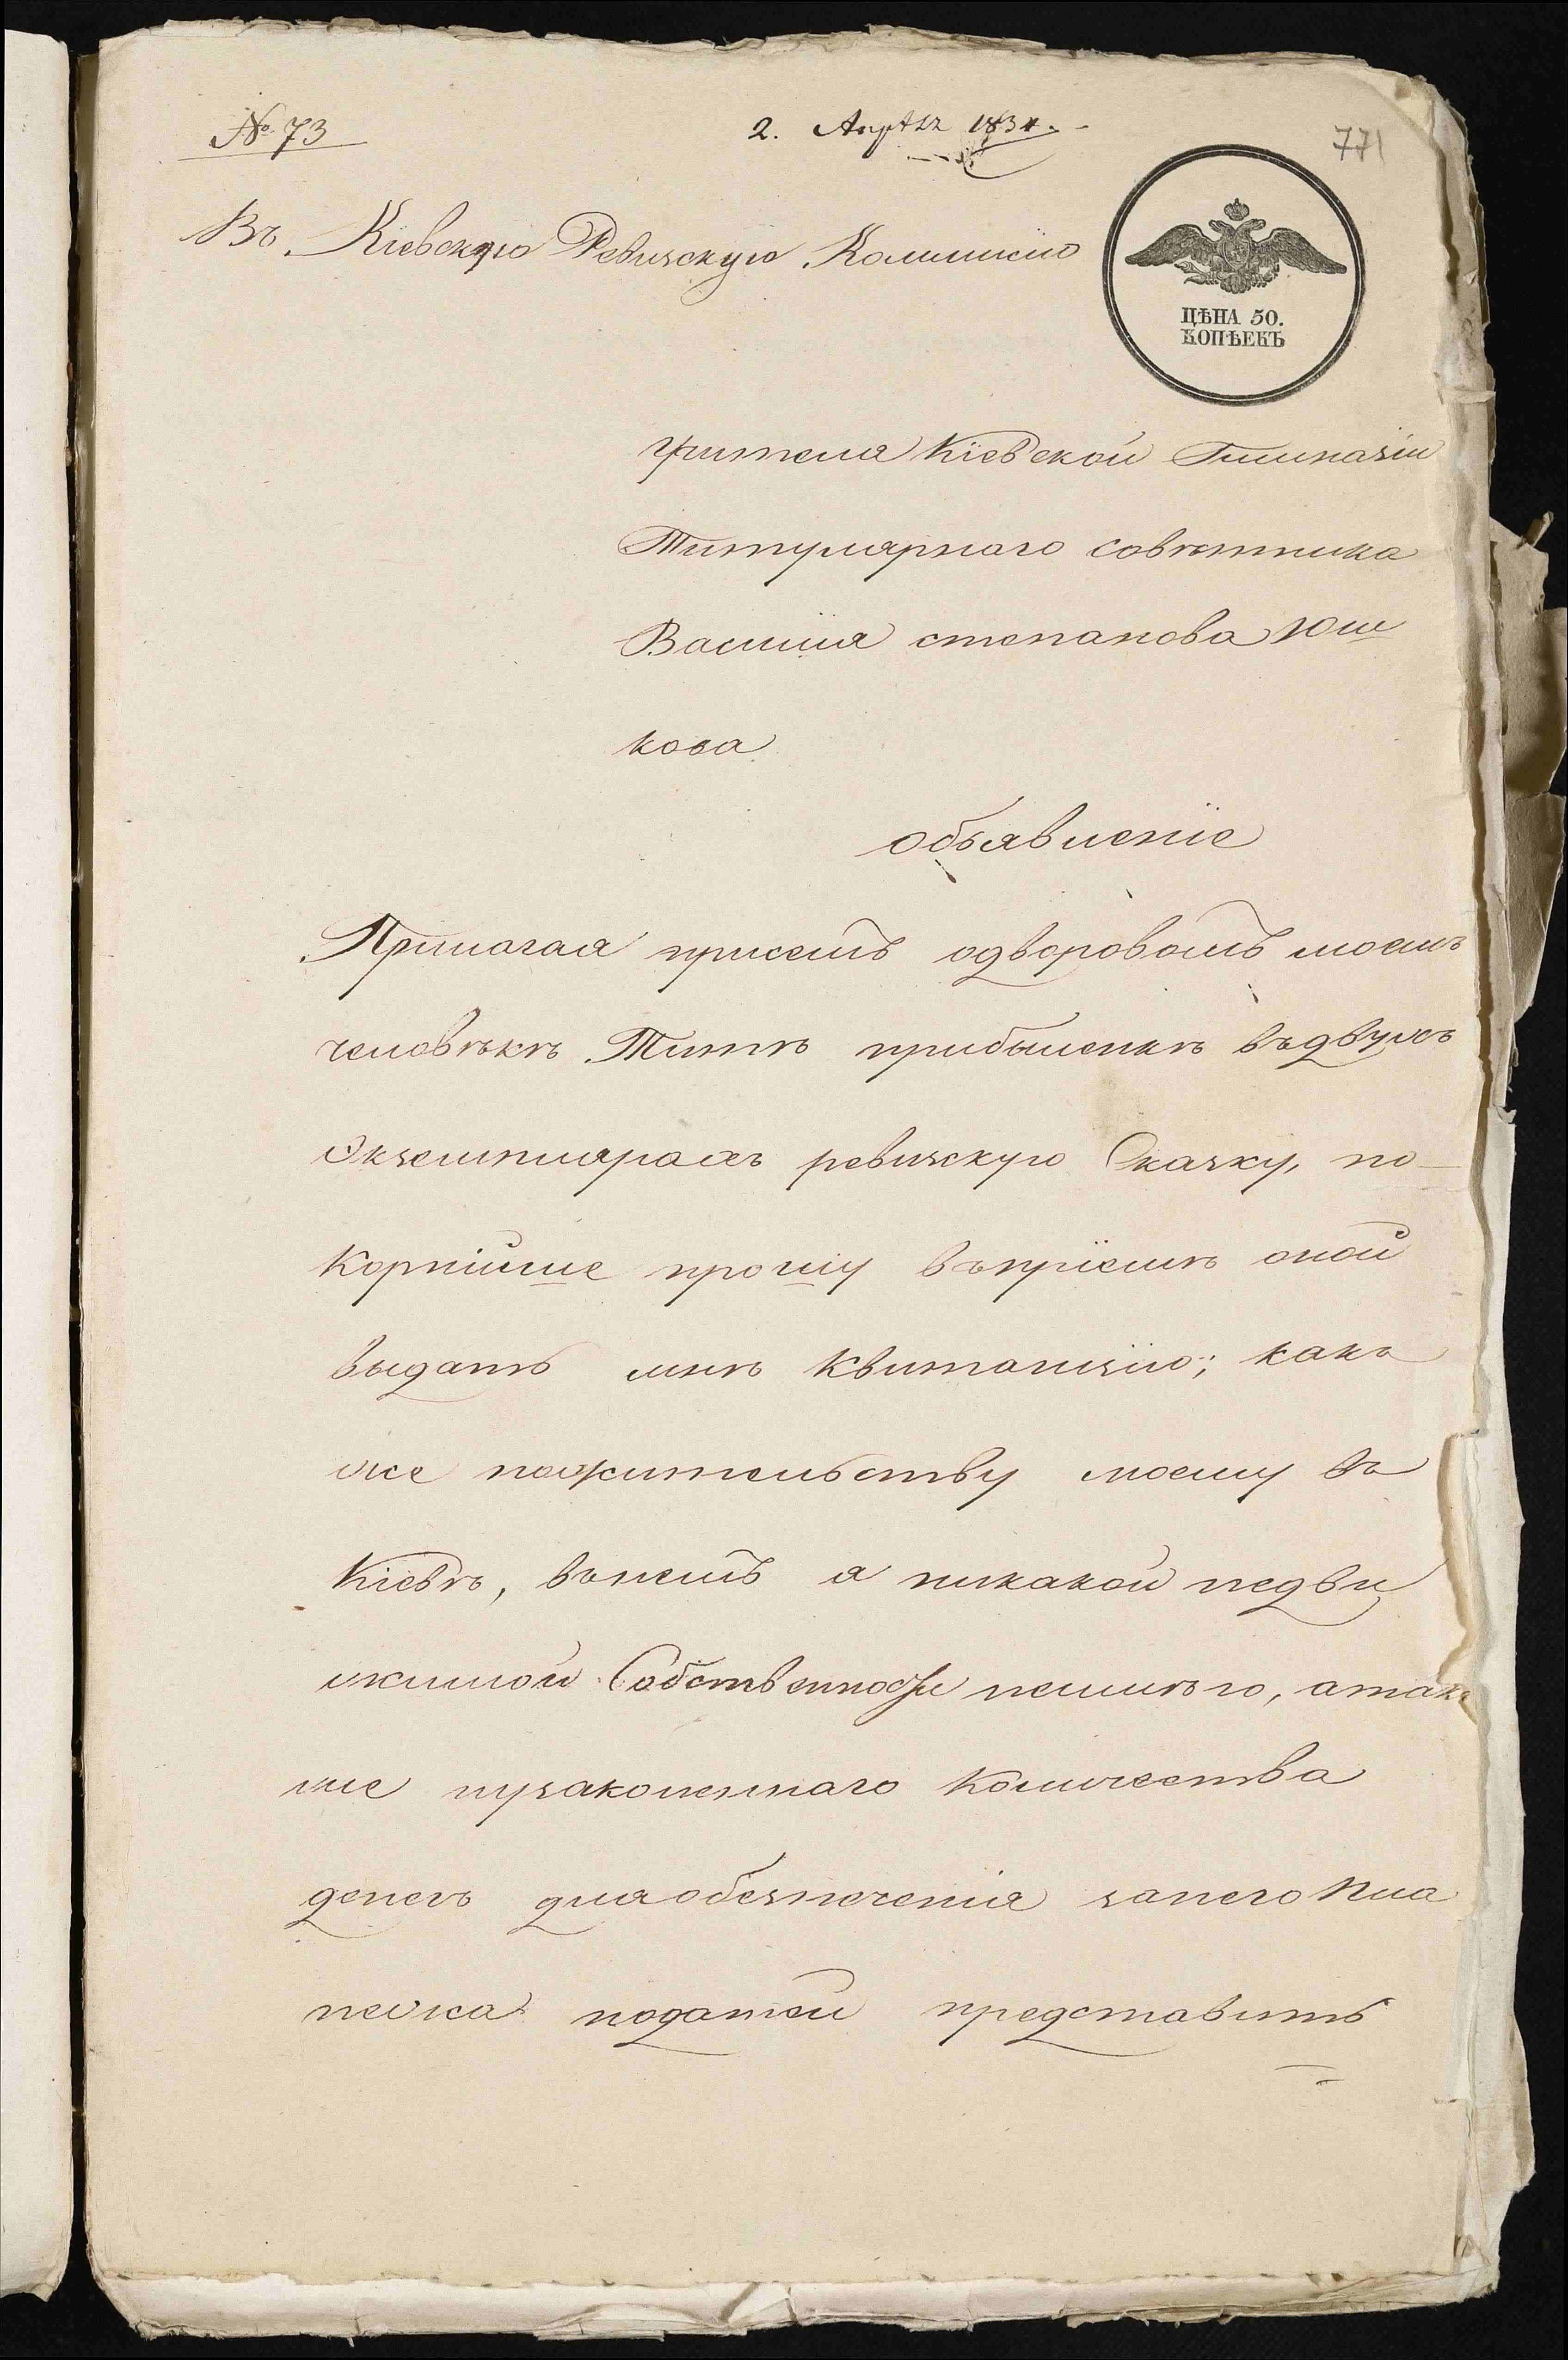 № 73
2. Апрѣля 1834.
771
Въ Кіевскую Ревизскую Коммисію
ЦѢНА 50.
КОПѢЕКЪ
учителя Кіевской Гимназіи
Титулярнаго совѣтника
Василія степанова Юш
кова
объявленіе
Прилагая присемъ одворовомъ моемъ
человѣкѣ Титѣ прибыленкѣ въдвухъ
Экземплярахъ ревизскую Сказку, по-
корнійше прошу въпріемѣ оной
выдать мнѣ Квитанцію; какъ
же пожительству моему въ
Кіевѣ, вънемъ я никакой недви
жимой Собственности неимѣю, атак
же иузаконеннаго Количества
денегъ дляобезпеченія занего пла
тежа податей представить